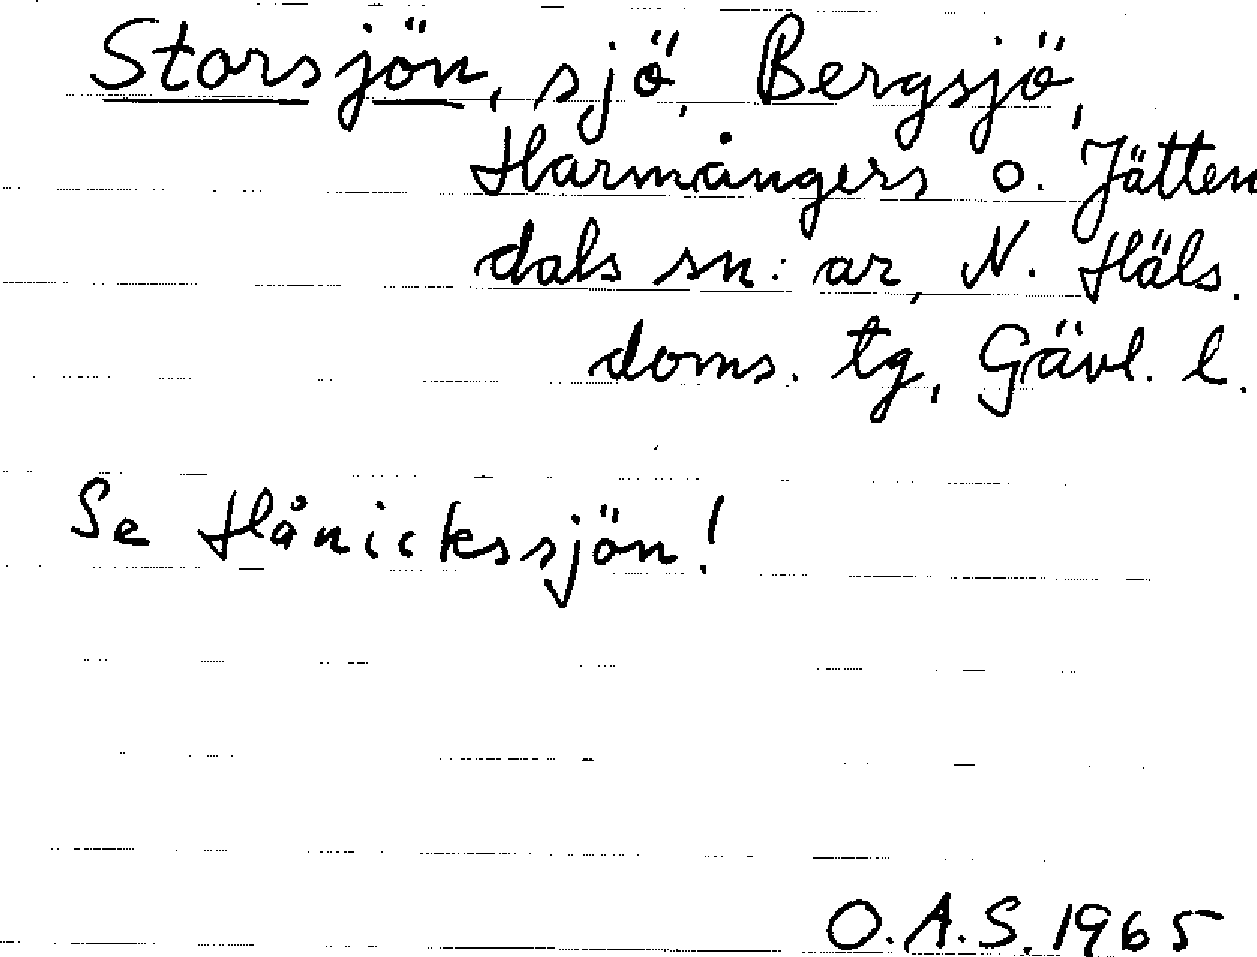 Storsjön, sjö, Bergsjö,
Harmångers o. Jätten
dals sn:ar, N. Häls.
doms. tg, Gävl. l.
Se Hånickssjön!
O.A.S. 1965